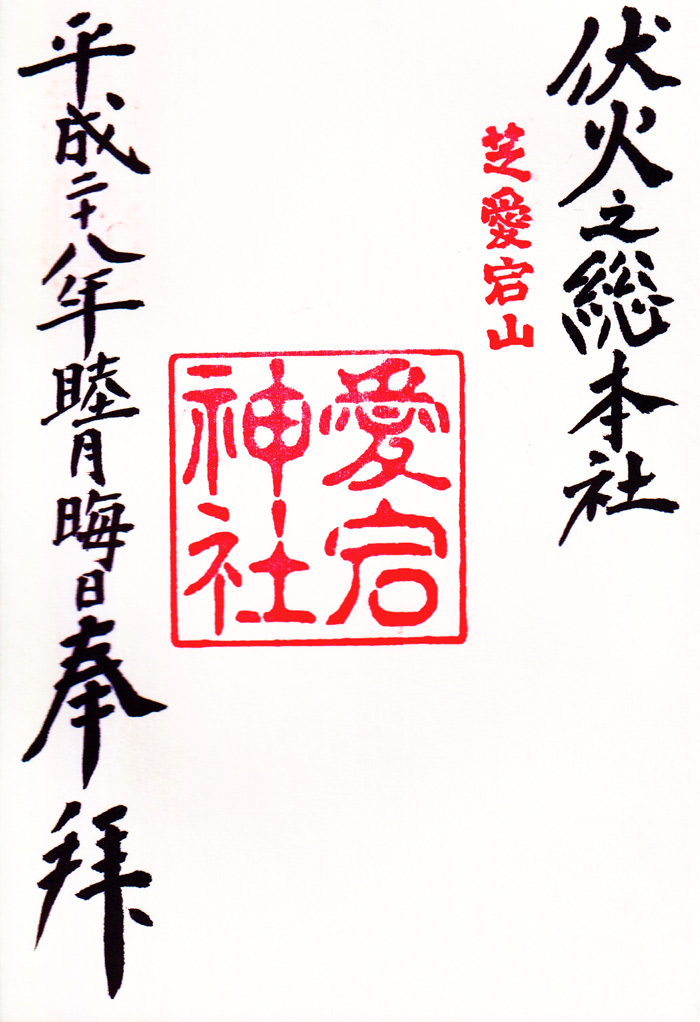 伏火之総本社
芝愛宕山
愛宕
神社
平成二十八年睦月晦日奉拝